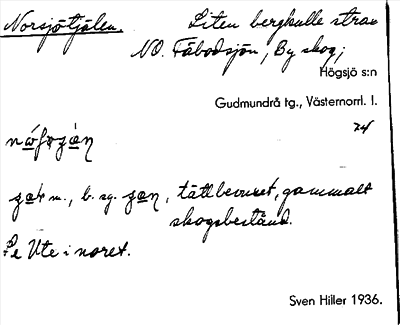 Norsjötjälen. Liten bergkulle strax
NO. Fäbodsjön, By skog;
Högsjö s:n
Gudmundrå tg., Västernorrl. l.
24
m., b. sg. , tätt bevuxet, gammalt
skogsbestånd.
Se Ute i noret.
Sven Hiller 1936.